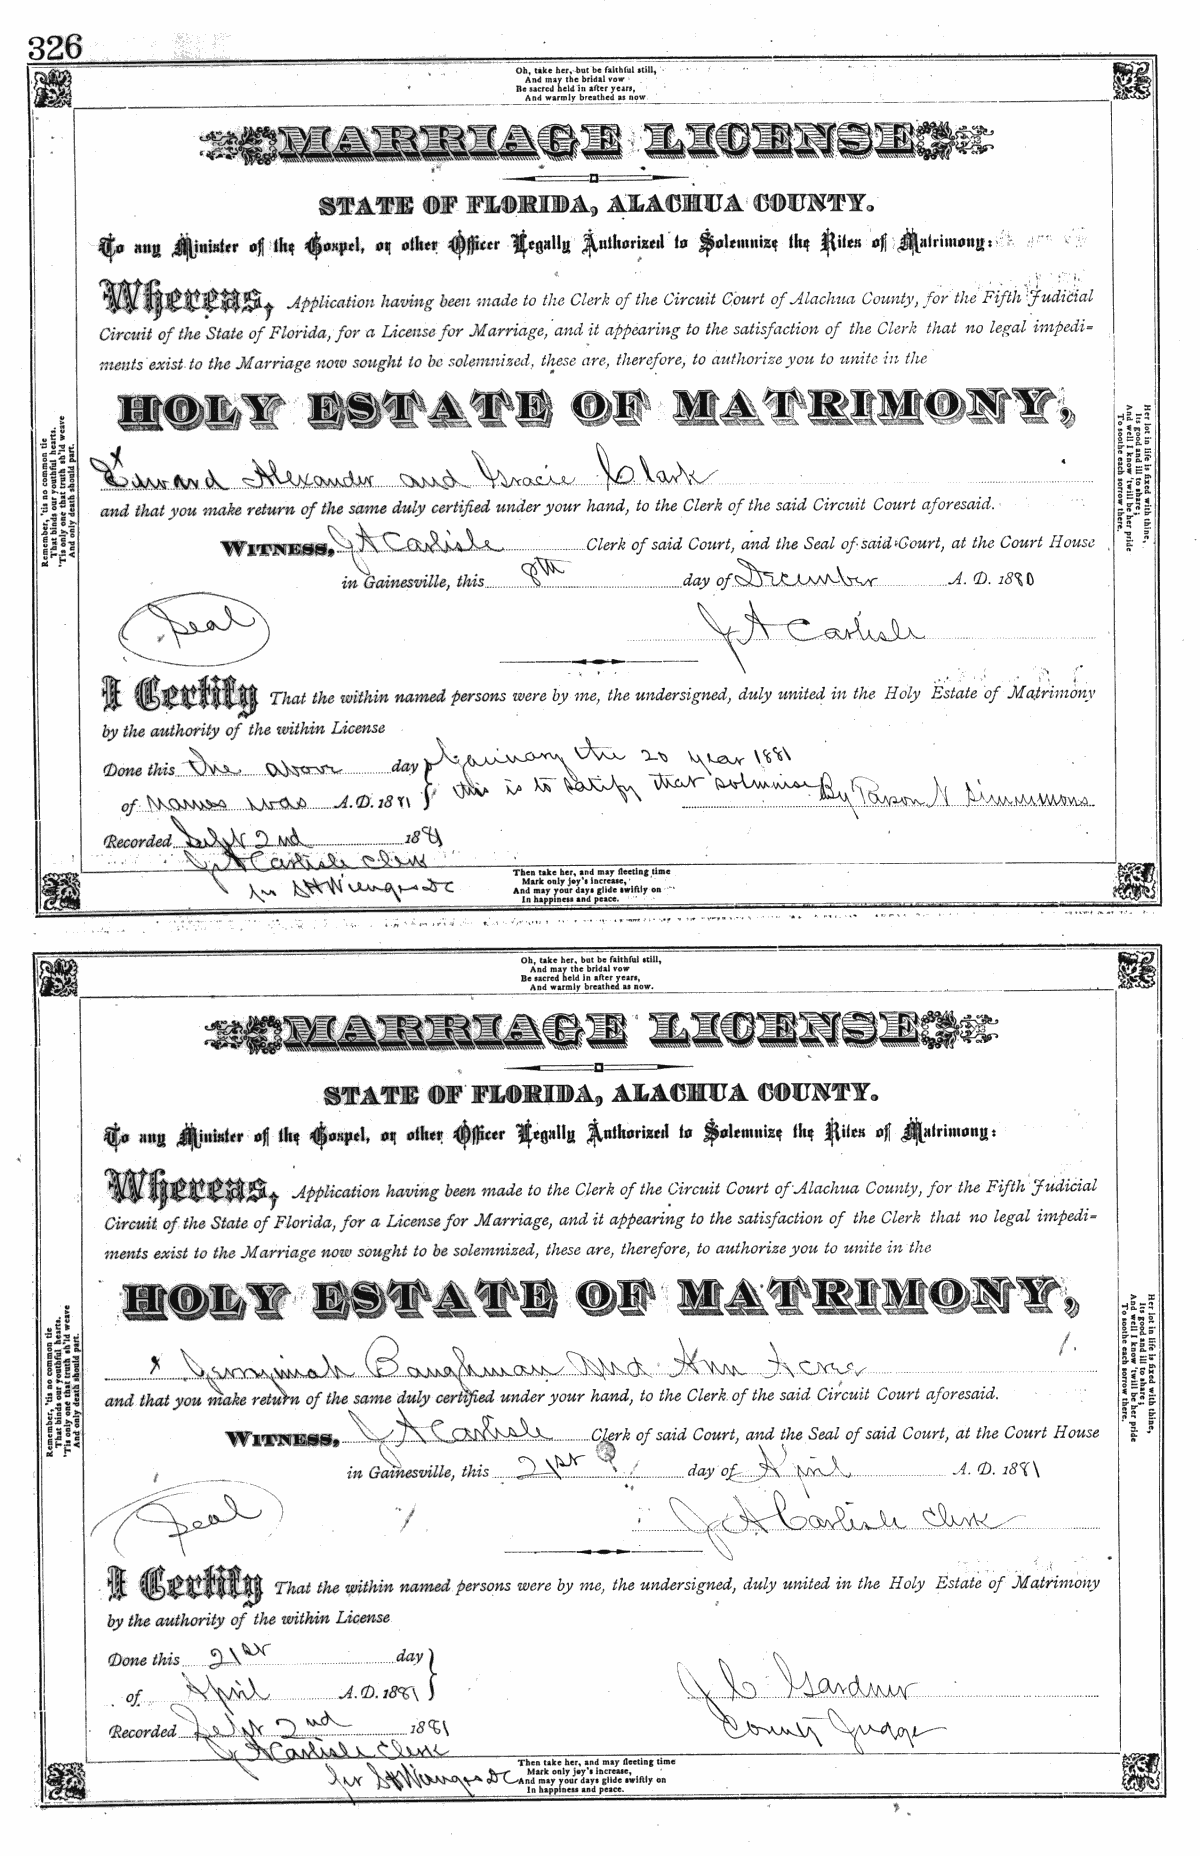 326
Oh, take her, but be faithful still,
And may the bridal vow
Be sacred held in after years,
And warmly breathed as now.
MARRIAGE LICENSE
STATE OF FLORIDA, ALACHUA COUNTY.
To any Minister of the Gospel, or other Officer Legally Authorized to Solemnize the Rites of Matrimony:
Whereas, Application having been made to the Clerk of the Circuit Court of Alachua County, for the Fifth Judicial
Circuit of the State of Florida, for a License for Marriage, and it appearing to the satisfaction of the Clerk that no legal impedi-
ments exist to the Marriage now sought to be solemnized, these are, therefore, to authorize you to unite in the
HOLY ESTATE OF MATRIMONY,
x
Edward Alexander and Gracie Clark
and that you make return of the same duly certified under your hand, to the Clerk of the said Circuit Court aforesaid.
WITNESS, J A Carlisle Clerk of said Court, and the Seal of said Court, at the Court House
in Gainesville, this 8th day of December A. D. 1880
Seal
J A Carlisle
I Certify That the within named persons were by me, the undersigned, duly united in the Holy Estate of Matrimony
by the authority of the within License
Done this the above day January the 20 year 1881
of names was A.D. 1881 this is to satify that solmnise By Parson N Simmmons
Recorded Sept 2nd 1881
J A Carlisle Clerk
pr S H Wienges DC
Then take her, and may fleeting time
Mark only joy's increase,
And may your days glide swiftly on
In happiness and peace.
Remember, 'tis no common tie
That binds our youthful hearts,
'Tis only one that truth sh'ld weave
And only death should part.
Her lot in life is fixed with thine,
Its good and ill to share;
And well I know 'twill be her pride
To soothe each sorrow there.
Oh, take her, but be faithful still,
And may the bridal vow
Be sacred held in after years,
And warmly breathed as now.
MARRIAGE LICENSE
STATE OF FLORIDA, ALACHUA COUNTY.
To any Minister of the Gospel, or other Officer Legally Authorized to Solemnize the Rites of Matrimony:
Whereas, Application having been made to the Clerk of the Circuit Court of Alachua County, for the Fifth Judicial
Circuit of the State of Florida, for a License for Marriage, and it appearing to the satisfaction of the Clerk that no legal impedi-
ments exist to the Marriage now sought to be solemnized, these are, therefore, to authorize you to unite in the
HOLY ESTATE OF MATRIMONY,
x Jerrymiah Baughman and Ann Acree
and that you make return of the same duly certified under your hand, to the Clerk of the said Circuit Court aforesaid.
WITNESS, J A Carlisle Clerk of said Court, and the Seal of said Court, at the Court House
in Gainesville, this 21st day of April A. D. 1881
Seal
J A Carlisle Clerk
I Certify That the within named persons were by me, the undersigned, duly united in the Holy Estate of Matrimony
by the authority of the within License
Done this 21st day
of April A.D. 1881
J C Gardner
Recorded Sept 2nd 1881
County Judge
J A Carlisle Clerk
pr S H Wienges DC
Then take her, and may fleeting time
Mark only joy's increase,
And may your days glide swiftly on
In happiness and peace.
Remember, 'tis no common tie
That binds our youthful hearts,
'Tis only one that truth sh'ld weave
And only death should part.
Her lot in life is fixed with thine,
Its good and ill to share;
And well I know 'twill be her pride
To soothe each sorrow there.